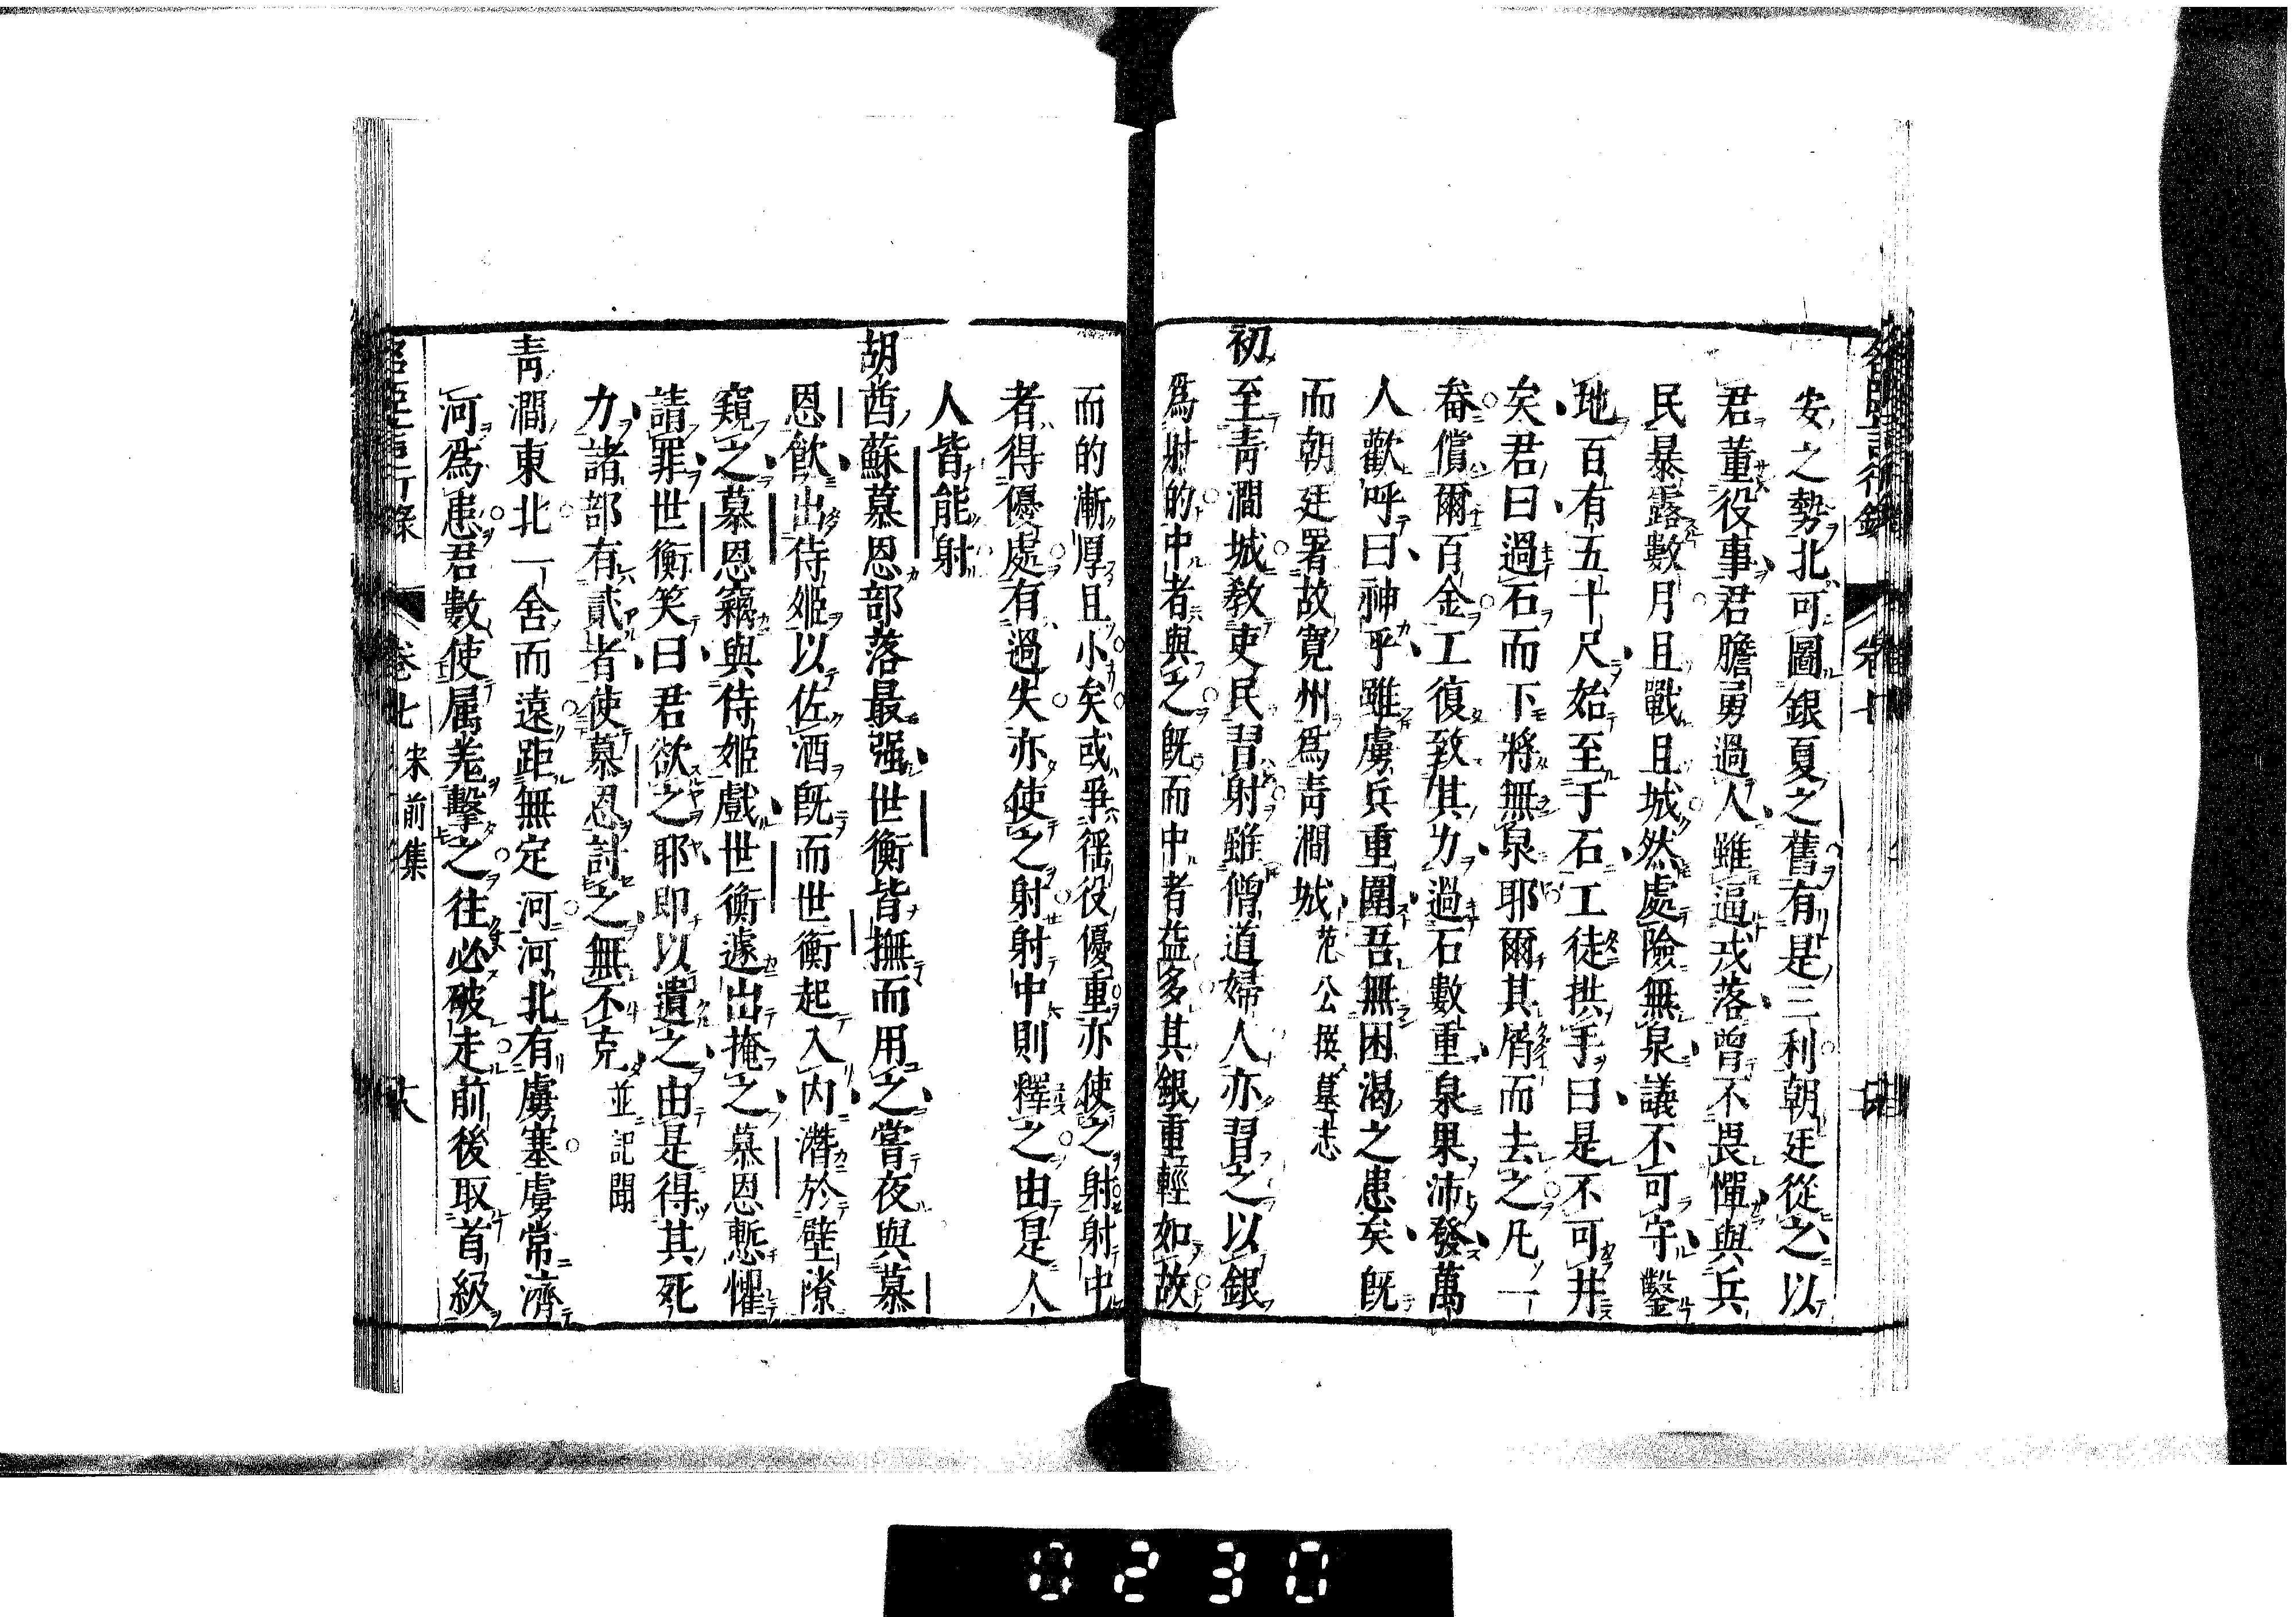 安之勢北可圖銀夏之舊有是三利朝廷從之以
君董役事君膽勇過人雖逼戎落曾不畏憚與兵
民暴露數月且戰且城然處險無泉議不可守鑿
地百有五十尺始至于石工徒拱手曰是不可井
矣君曰過石而下將無泉耶爾其屑而去之凡一
畚償爾百金工復致其力過石數重泉果沛發萬
人歡呼曰神乎雖虜兵重圍吾無困渴之患矣既
而朝廷署故寛州爲青澗城范公撰墓志
初至青澗城教吏民習射雖僧道婦人亦習之以銀
爲射的中者與之既而中者益多其銀重輕如故
而的漸厚且小矣或爭徭役優重亦使之射射中
者得優處有過失亦使之射射中則釋之由是人
人皆能射
胡酋蘇慕恩部落最强世衡皆撫而用之嘗夜與慕
恩飲出侍姬以佐酒既而世衡起入内潛於壁隙
窺之慕恩竊與侍姬戲世衡遽出掩之慕恩慙懼
請罪世衡笑曰君欲之耶即以遺之由是得其死
力諸部有貳者使慕恩討之無不克並記聞
青澗東北一舍而遠距無定河河北有虜塞虜常濟
河爲患君數使属羌擊之往必破走前後取首級
卷七 宋前集